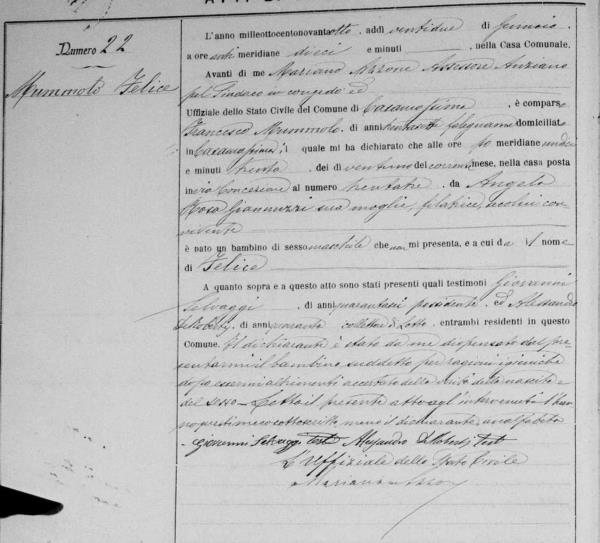 Numero 22
Mummolo Felice
L'anno millottocentonovantotto, addì ventidue di Gennaio,
a ore anti meridiane dieci e minuti, nella Casa Comunale.
Avanti di me Mariano Marone Assessore Anziano
pel Sindaco in congedo ed
Uffiziale dello Stato Civile del Comune di Casamassima, è comparso
Francesco Mummolo, di anni falegname domiciliato
in Casamassima, il quale mi ha dichiarato che alle ore po meridiane undici
e minuti trenta, del dì ventuno del corrente mese, nella casa posta
in via Concezione al numero trentatre, da Angela
Rosa Giannuzzi sua moglie, filatrice, secolui con
vivente
è nato un bambino di sesso maschile che non mi presenta, e a cui dà il nome
di Felice
A quanto sopra e a questo atto sono stati presenti quali testimoni Giovanni
Selvaggi, di anni quarantasei possidente ed Alessandro
di anni quaranta collettore di Lotto, entrambi residenti in questo
Comune. Il dichiarante è stato da me dispensato dal pre
sentarmi il bambino suddetto per ragioni igieniche
dopo essermi altrimenti accertato della della nascita e
del sesso. Letto il presente atto agl'intervenuti l'han
no meco sottoscritto meno il dichiarante analfabeta
Giovanni Selvaggi Test Alessandro Test
L'Uffiziale dello Stato Civile